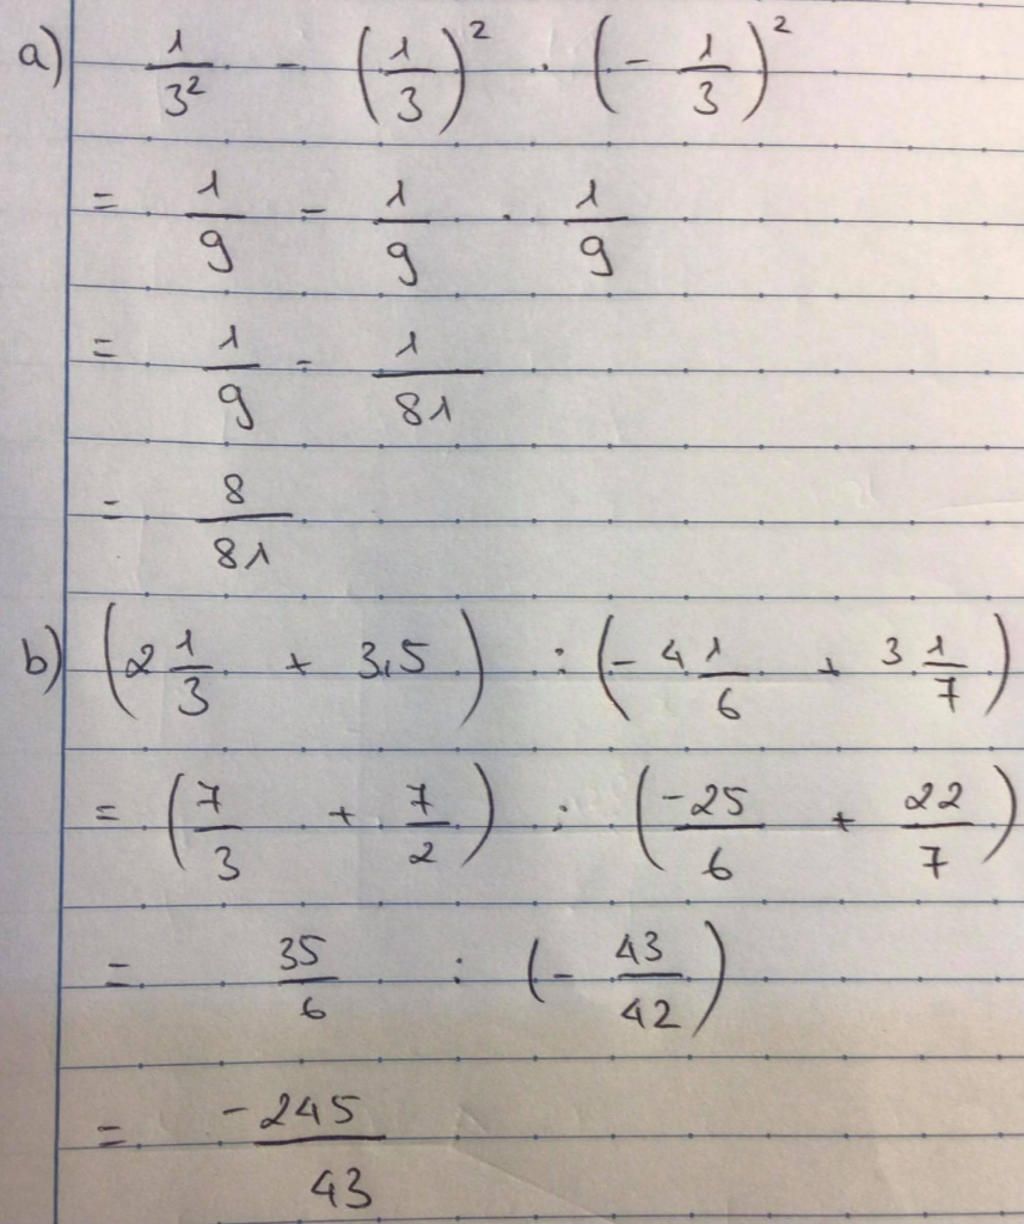 a) 1/3² - (1/3)² · (- 1/3)²
= 1/9 - 1/9 · 1/9
= 1/9 - 1/81
= 8/81
b) (2 1/3 + 3,5) : (- 4 1/6 + 3 1/7)
= (7/3 + 7/2) : (-25/6 + 22/7)
= 35/6 : (- 43/42)
= -245/43